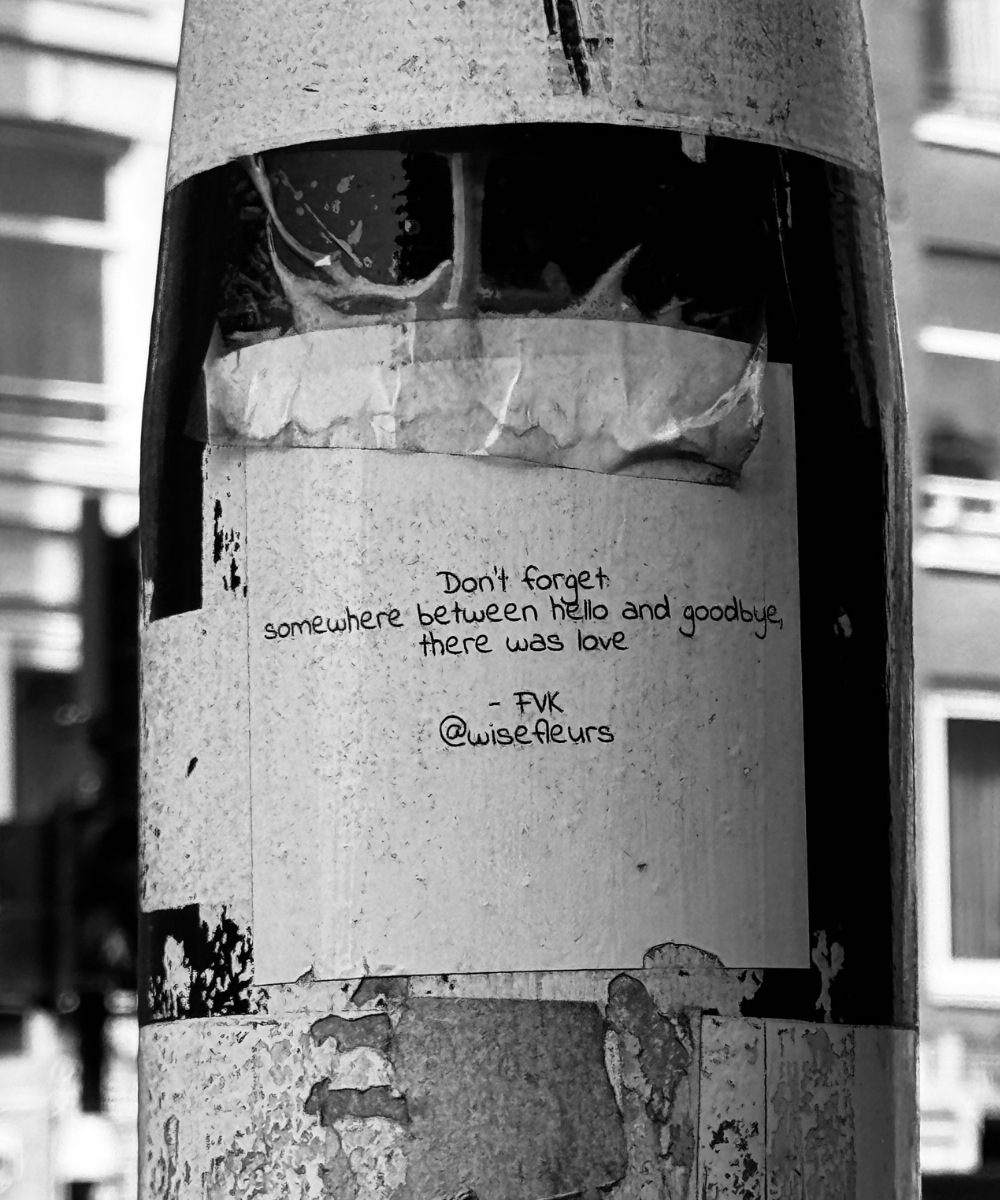 Don't forget
somewhere between hello and goodbye,
there was love
- FVK
@wisefleurs